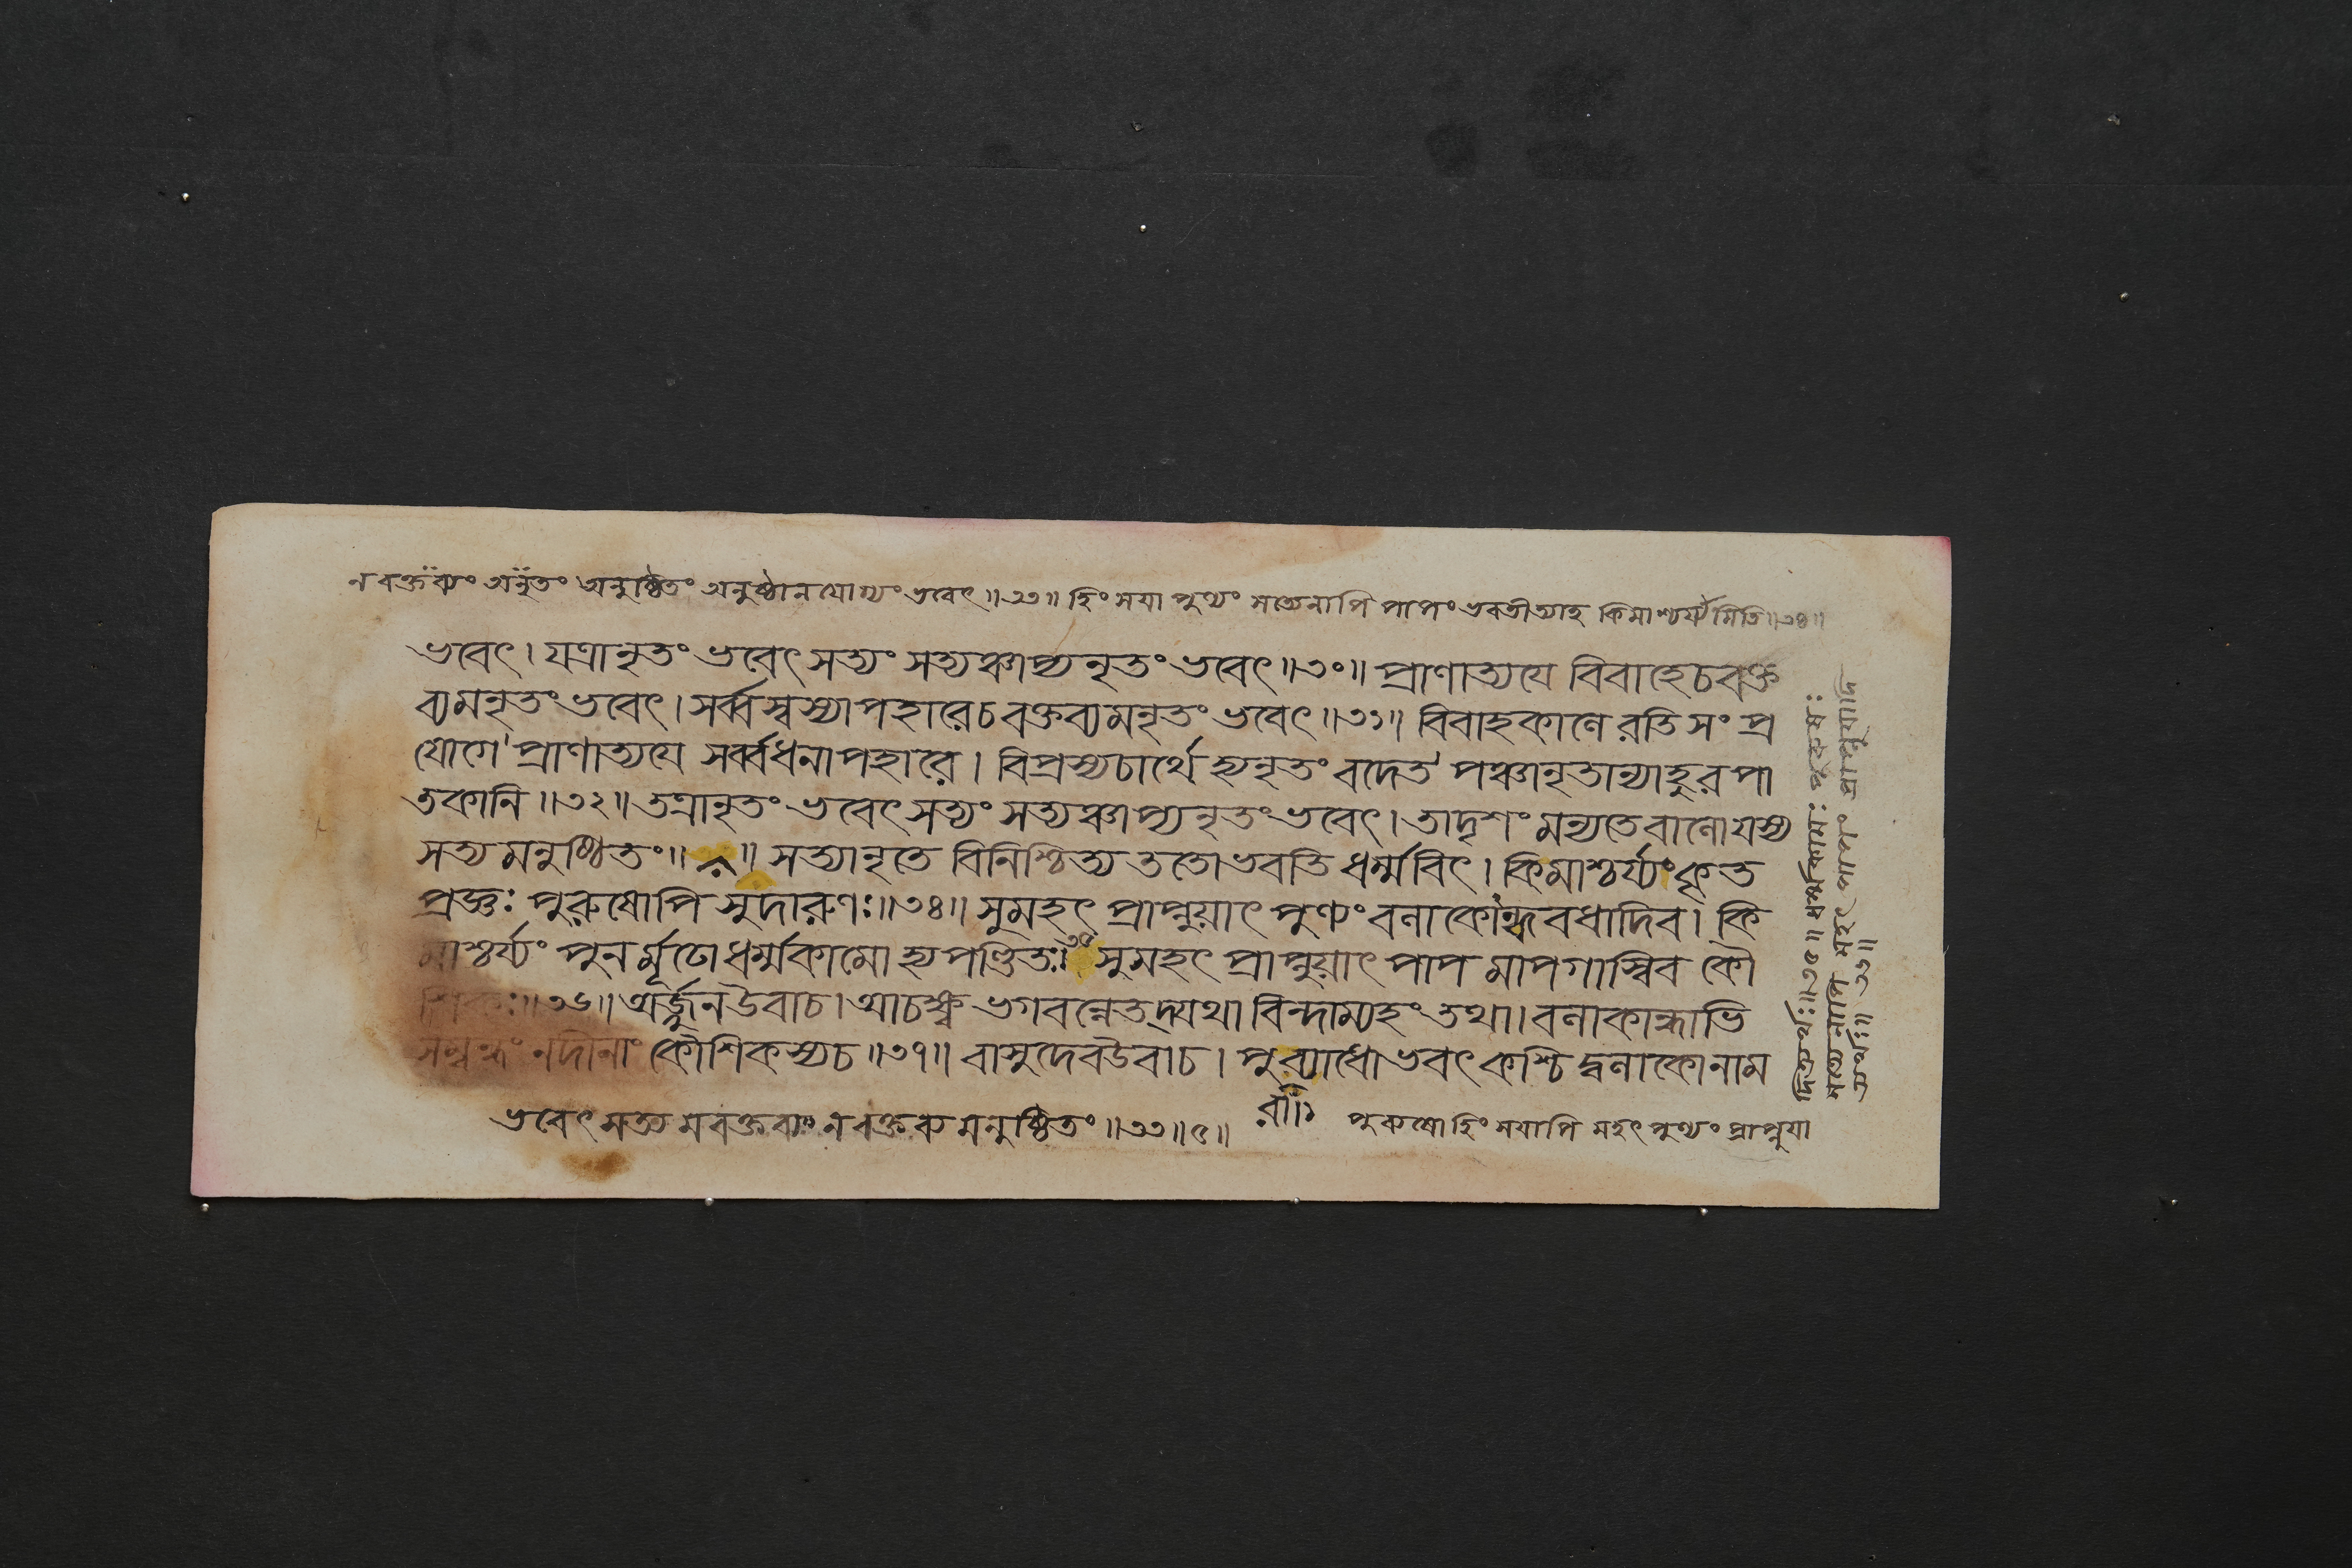 ন বক্তব্যং অনৃতং অনুষ্ঠিতং অনুষ্ঠানযোগ্যং ভবেৎ॥৩৩॥ হিংসয়া পুণ্যং সত্যেনাপি পাপং ভবতীত্যাহ কিমাশ্চর্য্যমিতি॥৩৪॥
ভবেৎ। যত্রানৃতং ভবেৎ সত্যং সত্যঞ্চাপ্যনৃতং ভবেৎ॥৩০॥ প্রাণাত্যযে বিবাহেচবক্ত
ব্যমনৃতং ভবেৎ। সর্ব্বস্বস্যাপহারেচ বক্তব্যমনৃতং ভবেৎ॥৩১॥ বিবাহকালে রতি সং প্র
যোগে প্রাণাত্যযে সর্ব্বধনাপহারে। বিপ্রস্যচার্থে হ্যনৃতং বদেত পঞ্চানৃতান্যাহুরপা
তকানি॥৩২॥ তত্রানৃতং ভবেৎ সত্যং সত্যঞ্চাপ্যনৃতং ভবেৎ। তাদৃশং মন্যতে বালো যস্য
সত্য মনুষ্ঠিতং॥ সত্যানৃতে বিনিশ্চিত্য ততো ভবতি ধর্ম্মবিৎ। কিমাশ্চর্য্যং কৃত
প্রজ্ঞঃ পুরুষোপি সুদারুণঃ॥৩৪॥ সুমহৎ প্রাপ্নুয়াৎ পুণ্যং বলাকোন্ধবধাদিব। কি
মাশ্চর্য্যং পুনর্মূঢো ধর্ম্মকামো হ্যপণ্ডিতঃ।৩৫ সুমহৎ প্রাপ্নুয়াৎ পাপ মাপগাস্বিব কৌ
শিকঃ॥৩৬॥ অর্জ্জুনউবাচ। আচক্ষ্ব ভগবন্নেতদ্যথা বিন্দাম্যহং তথা। বলাকান্ধাভি
সম্বন্ধং নদীনাং কৌশিকস্যচ॥৩৭॥ বাসুদেবউবাচ। পুব্যাধোভবৎ কশ্চিদ্বলাকোনাম
ভবেৎ সত্য মবক্তব্যং ন বক্তব্য মনুষ্ঠিতং॥৩৩॥৫॥
রা।
পুরুষো হিংসয়াপি মহৎ পুণ্যং প্রাপ্নুয়া
দিত্যর্থঃ॥৩৫॥ ধর্ম্মকামঃ পুরুষঃ
সত্যেনাপি মহৎ পাপং প্রাপ্নুয়াদি
ত্যর্থঃ॥৩৬॥